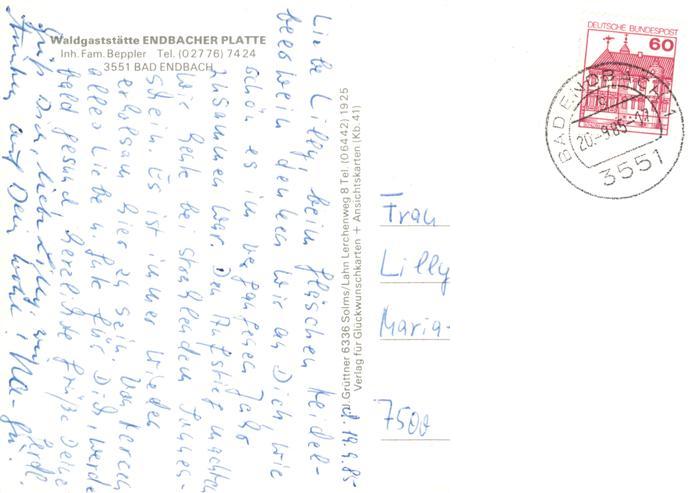 Waldgaststätte ENDBACHER PLATTE
Inh. Fam. Beppler Tel. (02776) 7424
3551 BAD ENDBACH
DEUTSCHE BUNDESPOST
60
BAD ENDBACH 1
20.-9.85.-17
3551
d. 19.9.85
Liebe Lilly, beim Gläschen Heidel-
beerwein denken wir an Dich, wie
schön es im vergangenen Jahr
zusammen war. Den Aufstieg machten
wir heute bei strahlendem Sonnen-
schein. Es ist immer wieder
erholsam hier zu sein. Von Herzen
alles Liebe u. Gute für Dich, werde
bald gesund herzlichste Grüße Deine
Grüß Dich, liebe Lilly, wir
auf Dein Wohl!
J. Grüttner 6336 Solms/Lahn Lerchenweg 8 Tel. (06442) 1925
Verlag für Glückwunschkarten + Ansichtskarten (Kb. 41)
Frau
Lilly
Maria-
7500